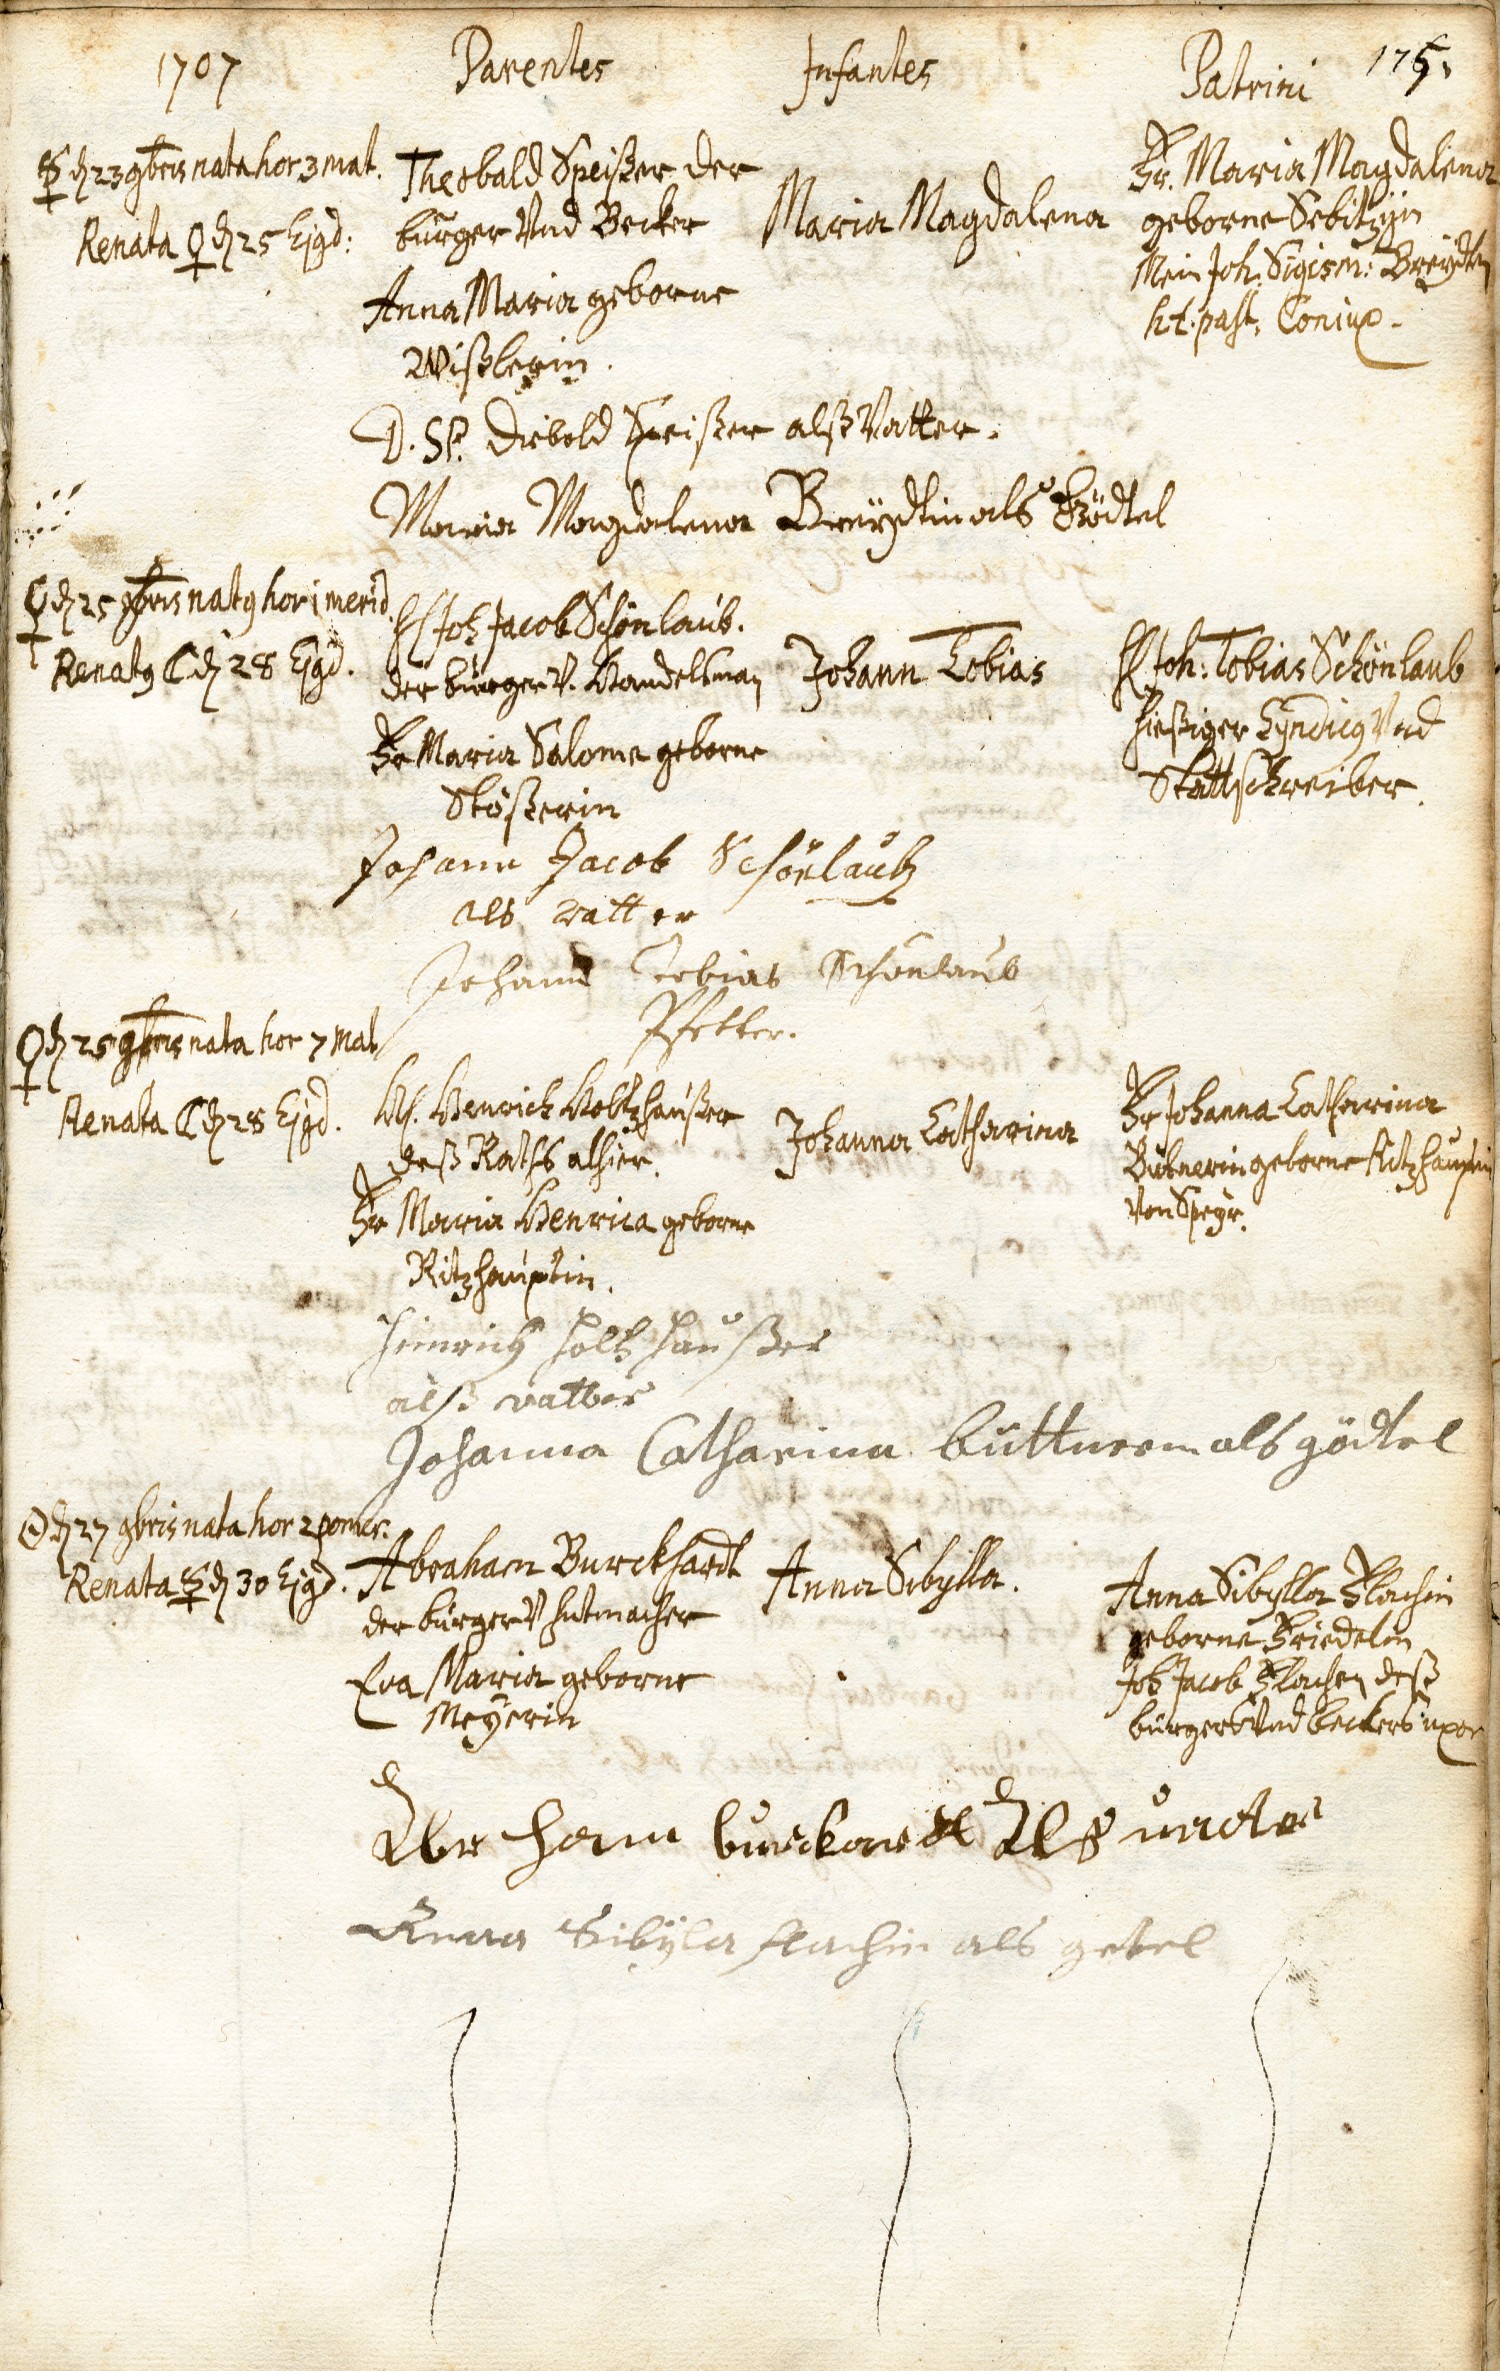 1707
Parentes
Infantes
Patrini
175.
☿ d 23 9bris nata hor 3 mat.
Renata ♀ d 25 Ejgd:
Theobald Speißer der
burger Vnd Becker
Anna Maria geborne
Wißlerin.
Maria Magdalena
Fr. Maria Magdalena
geborne Sebitzyin
Mein Joh: Sigism: Breydten
h.t. past. Coniux.
D. SP. Diebold Speißer alß Vatter.
Maria Magdalena Breÿdtin als Gödtel
♀ d 25 9bris natg hor 1 merid
Renatg ☾ d 28 Ejgd.
H Joh Jacob Schönlaub.
der burger v. Handelsman
Fr Maria Salome geborne
Stößerin
Johann Tobias
H Joh: Tobias Schönlaub
hießiger Syndicg Vnd
Stattschreiber.
Johann Jacob Schönlaub
als vatter
Johann Tobias Schönlaub
Pfetter.
♀ d 25 9bris nata hor 7 mat
Renata ☾ d 28 Ejgd.
H. Henrich Holtzhaußer
deß Raths alhier.
Fr Maria Henrica geborne
Ritzhauptin.
Johanna Catharina
Fr Johanna Catharina
Bütnerin geborne Ritzhauptin
Von Speyr.
Hinrich Holtzhaußer
alß vatter
Johanna Catharina Büttnerin als gödtel
☉ d 27 9bris nata hor 2 pomer.
Renata ☿ d 30 Ejgd.
Abraham Burckhardt
der burger V hutmacher
Eva Maria geborne
Meÿerin
Anna Sibylla.
Anna Sibylla Flachin
geborne Friedelin
Joh Jacob Flachen deß
burgers Vnd beckers uxor
Abraham burckardt Als vatter
Anna Sibÿla flachin als getel